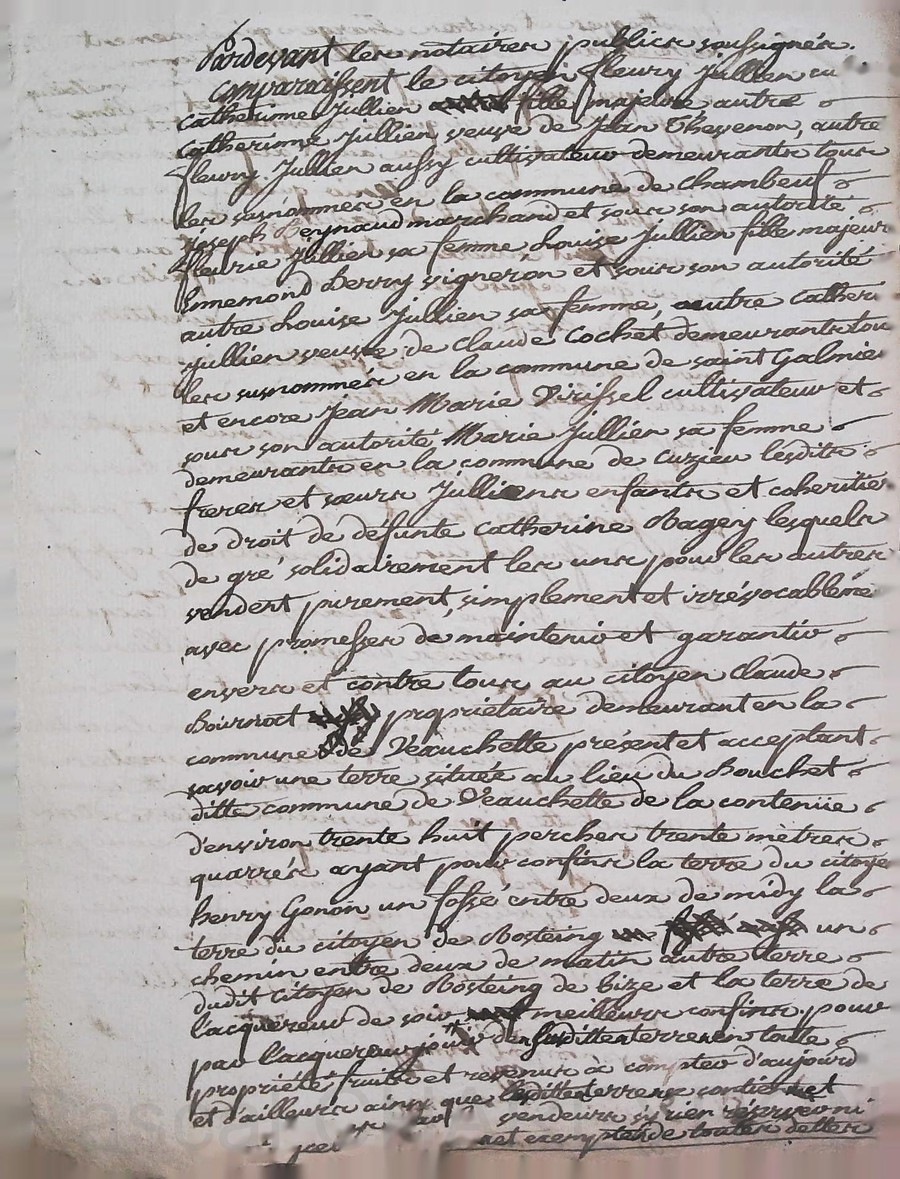 Pardevant les notaires publics soussignés.
comparaissent le citoyen fleury Jullien cu
catherinne Jullien fille majeure autre
catherinne Jullien veuve de Jean Thevenon, autre
fleury Jullien aussy cultivateur demeurants tous
les susnommes en la commune de chambeuf
Joseph Beynaud marchand et sous son autorité
fleurie Jullien sa femme Louise Jullien fille majeur
Ennemond Berry vigneron et sous son autorité
autre Louise Jullien sa femme, autre catheri
Jullien veuve de claude Cochet demeurants tou
les susnommés en la commune de saint Galmier
et encore Jean Marie Virissel cultivateur et
sous son autorité Marie Jullien sa femme
demeurants en la commune de cuzieu lesdits
freres et sœurs Julliens enfants et coheritier
de droit de défunte catherine Ragey lesquels
de gré solidairement les uns pour les autres
vendent purement, simplement et irrévocableme
avec promesses de maintenir et garantir
envers et contre tous au citoyen claude
Bournat propriétaire demeurant en la
commune de Veauchette présent et acceptant
savoir une terre située au lieu du Bouchet
ditte commune de Veauchette de la contenüe
d'environ trente huit perches trente mètres
quarrés ayant pour confins la terre du citoye
henry Gonon un fossé entre deux de midy la
terre du citoyen de Rosteing un
chemin entre deux de matin autre terre
dudit citoyen de Rosteing de bize et la terre de
l'acquereur de soir meilleurs confins, pour
par l'acquereur jouir de susditte terre en toute
propriété fruits et revenus à compter d'aujourd
et d'ailleurs ainsy que laditte terre se contient et
vendeurs s'y rien réserver ni
et exempte de toutes dettes